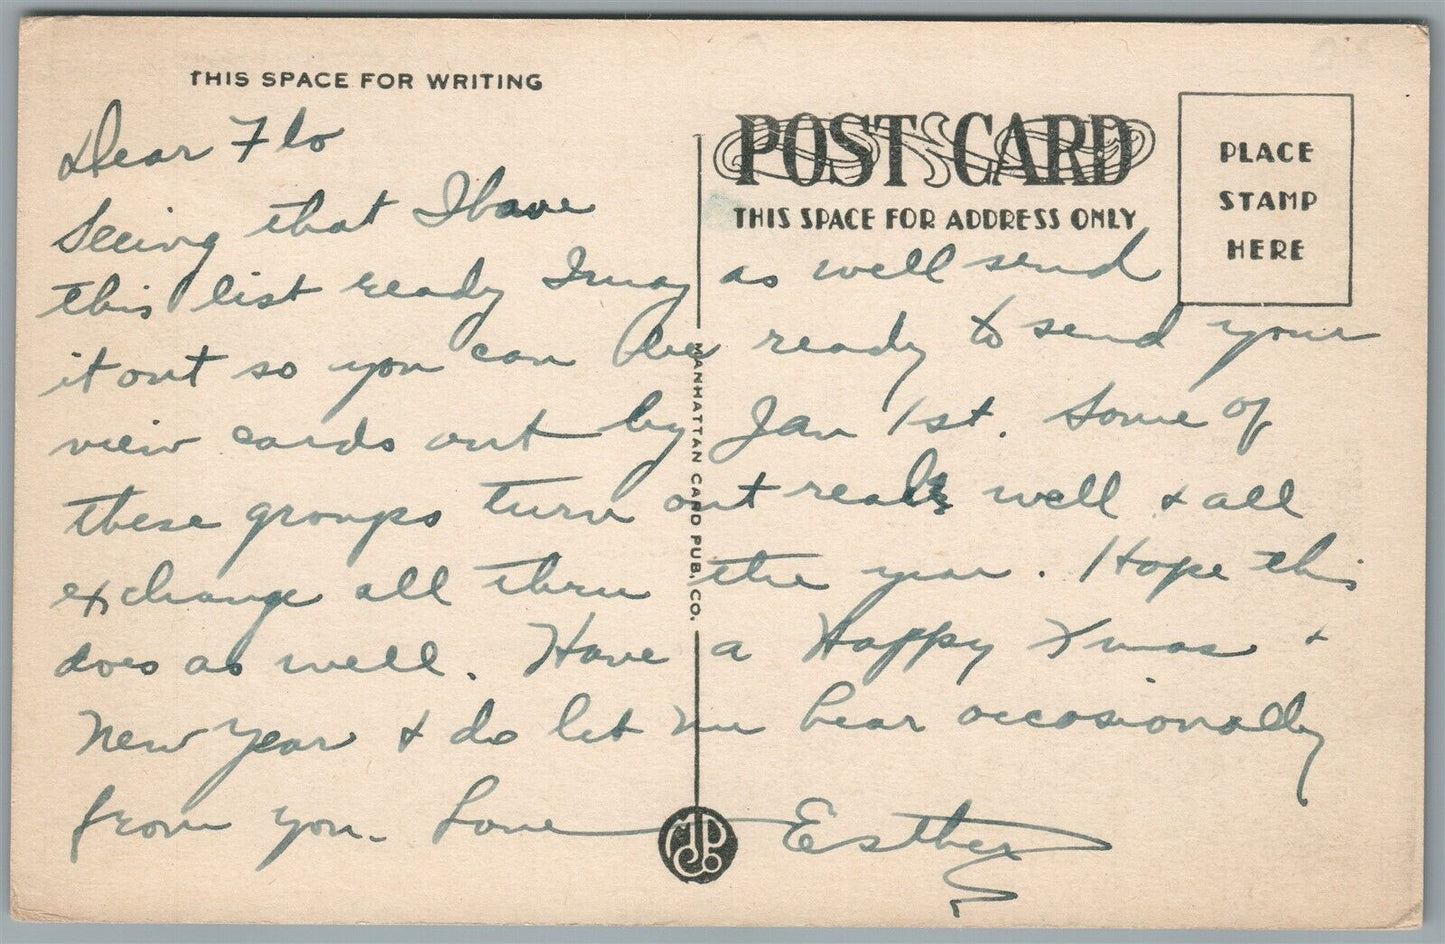 THIS SPACE FOR WRITING
POST CARD
THIS SPACE FOR ADDRESS ONLY
PLACE
STAMP
HERE
Dear Flo
Seeing that I have
this list ready I may as well send
it out so you can be ready to send your
view cards out by Jan 1st. Some of
these groups turn out really well & all
exchange all thru the year. Hope this
does as well. Have a Happy Xmas &
New Year & do let me hear occasionally
from you. Love Esther
MANHATTAN CARD PUB. CO.